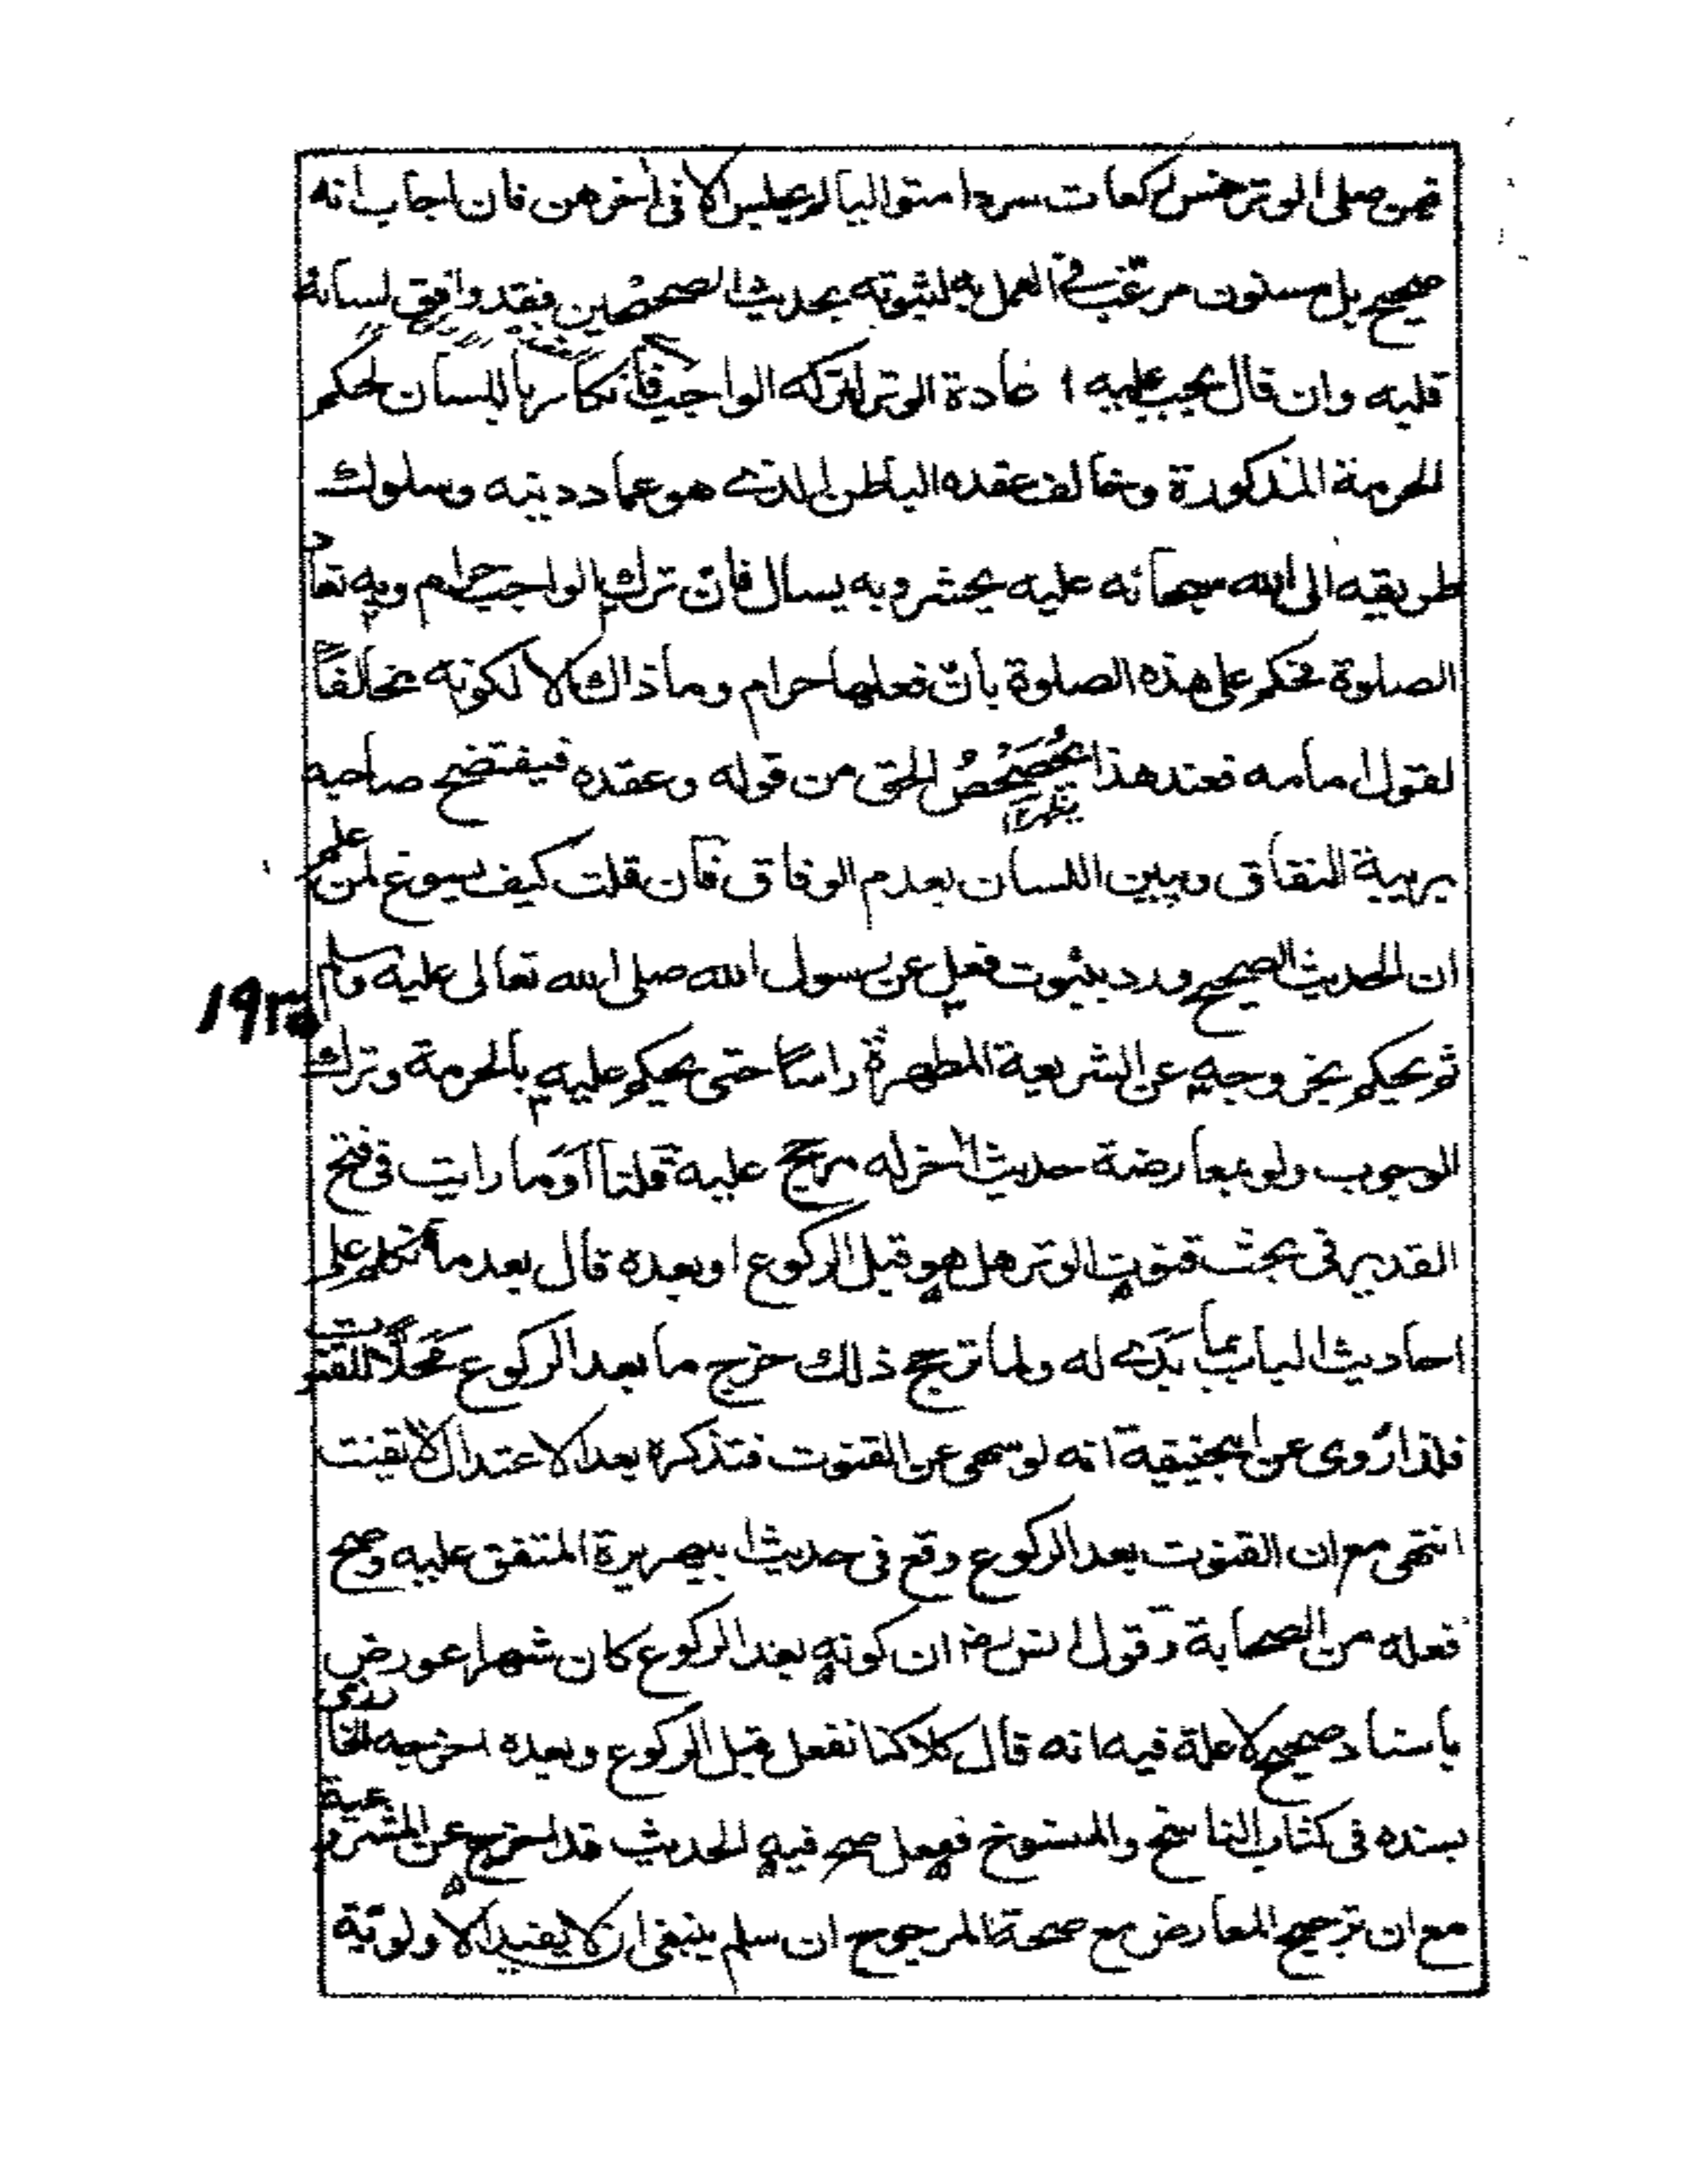 فيمن صلى الوتر خمس ركعات سردا متواليا لم يجلس الا فى اخرهن فان اجاب انه
صحيح بل مسنون مرغب فى العمل به لثبوته بحديث الصحيحين فقد وافق لسانه
قلبه وان قال يجب عليه اعادة الوتر لتركه الواجب فانكار باللسان لحكم
الحرمة المذكورة وخالف عقده الباطن الذى هو عماد دينه وسلوك
طريقه الى الله سبحانه عليه يحشر وبه يسال فان ترك الواجب حرام وبه تعاد
الصلوة فحكم على هذه الصلوة بان فعلها حرام وما ذاك الا لكونه مخالفاً
لقول امامه فعند هذا يُحَصْحَصُ الحق من قوله وعقده فيفتضح صاحبه
بريبة النفاق وبين اللسان بعدم الوفاق فان قلت كيف يسوغ لمن علم
ان الحديث الصحيح ورد بثبوت فعل عن رسول الله صلى الله تعالى عليه وسلم
ثم يحكم بخروجه عن الشريعة المطهرة راساً حتى يحكم عليه بالحرمة وترك
الوجوب ولو بمعارضة حديث اخر له مرجح عليه قلنا اَوَما رايت فى فتح
القدير فى بحث قنوت الوتر هل هو قبل الركوع او بعده قال بعد ما تكلم على
احاديث الباب بما بَدَى له ولما ترجح ذلك خرج ما بعد الركوع عن كونه مَحَلّاً للقنوت
فلذا رُوى عن ابيحنيفة انه لو سهى عن القنوت فتذكره بعد الاعتدال لا يقنت
انتهى مع ان القنوت بعد الركوع وقع فى حديث ابيهريرة المتفق عليه وصح
فعله من الصحابة وقول انس رض ان كونه بعد الركوع كان شهرا عورض
باسناد صحيح لا علة فيه انه قال كلا كنا نفعل قبل الركوع وبعده اخرجه الحازمى
بسنده فى كتاب الناسخ والمنسوخ ففعل صح فيه الحديث قد اخرج عن المشروعية
مع ان ترجيح المعارض مع صحة المرجوح ان سلم ينبغى ان لا يفيد الا ولوية
١٩٣